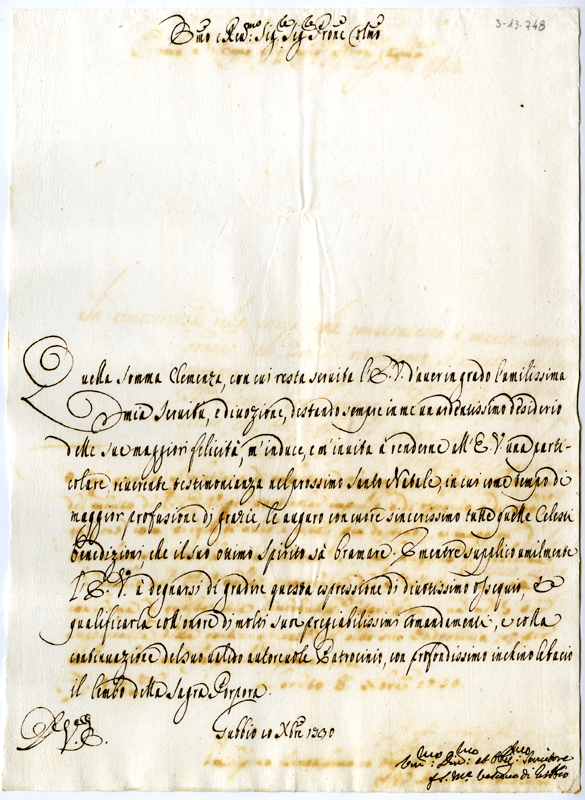 3-13-748
Emo e Rev:mo Sig.re Sig.re Prone Colmo
Quella somma Clemenza, con cui resta servita l'E. V. d'aver in grado l'umilissima
mia servitù, e divozione, destando sempre in me un ardentissimo desiderio
delle sue maggiori felicità, m'induce, e m'invita à renderne all'E. V. una parti-
colare riverente testimonianza nel prossimo Santo Natale, in cui come tempo di
maggior profusione di grazie, le auguro con cuore sincerissimo tutte quelle Celesti
benedizioni che il suo ottimo spirito sà bramare. E mentre supplico umilmente
l'E. V. a degnarsi di gradire questa espressione di divotissimo ossequio, e
qualificarla coll'onore di molti suoi pregiabilissimi comandamenti, e colla
continuazione del suo valido autorevole Patrocinio, con profondissimo inchino le bacio
il lembo della Sagra Porpora.
V. E.
Gubbio 10 Xbre 1730
Um: Div: et Obl: Servitore
f. S. Ma Vescovo di Gubbio